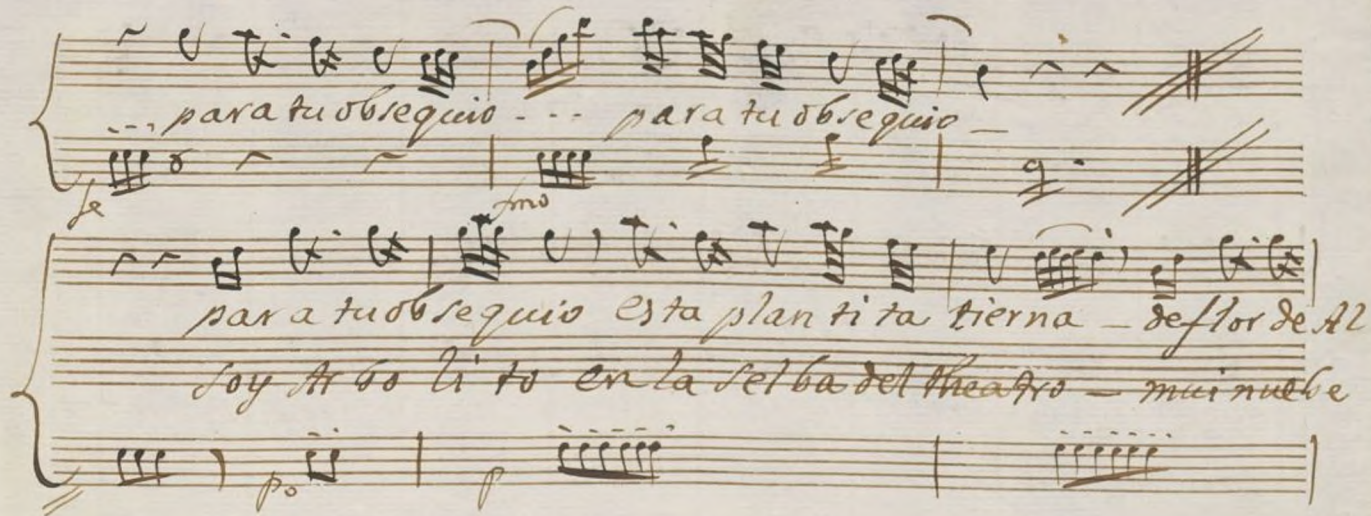 para tu obsequio - - - para tu obsequio _
fe fmo
para tu obsequio esta plan ti ta tierna _ de flor de Al
soy Ar bo li to en la selba del theatro _ mui nuebe
po p